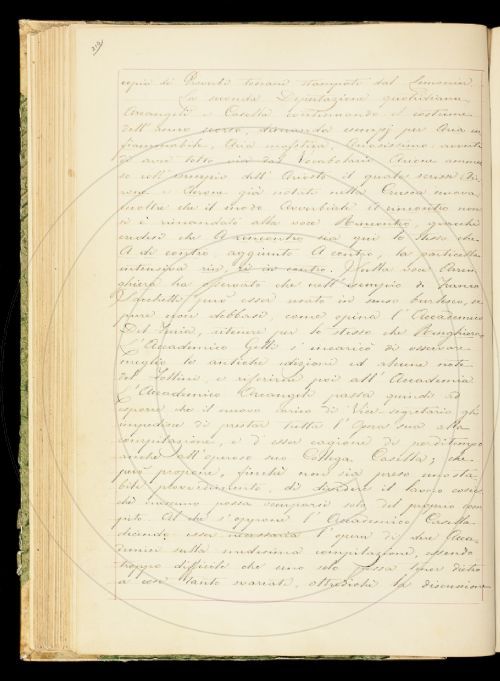 copia di Proverbi toscani stampati dal Lemonnier.
La seconda Deputazione quotidiana
Arcangeli e Casella continuando il costume
dell'anno scorso, domanda esempj per Aria in-
fiammabile, Aria mofetica, Ariosissimo
di aver tolto via dal Vocabolario Arione
so coll'esempio dell'Ariosto il quale scrisse Ari-
one e
già notati nella Crusca nuova,
inoltre che il modo Avverbiale il rincontro non
si è rimandato alla voce Rincontro, giacchè
credesi che A rincontro sia qui lo stesso che
A di contro, aggiunto A contro, la particella
intensiva rin, re in contro. Nella voce Arin-
ghiera ha osservato che nell'esempio di Franco
Sacchetti può esser usato in senso burlesco, op-
pure non debbasi, come opina l'Accademico
Del Furia, ritenere per lo stesso che Ringhiera.
L'Accademico Gelli s'incaricò di osservare
meglio le antiche edizioni ed alcune note
del Follini, e riferirne poi all'Accademia.
L'Accademico Arcangeli passa quindi ad
esporre che il nuovo carico di Vice-segretario gli
impedisce di prestar tutta l'opera sua alla
compilazione, e d'esser cagione di perditempo
anche all'operoso suo Collega Casella; che
però propone, finchè non sia preso uno sta-
bile provvedimento, di dividere il lavoro cosic-
chè ciascuno possa occuparsi solo del proprio com-
pito. Al che s'oppone l'Accademico Casella
dicendo esser necessaria l'opera di due Acca-
demici sulla medesima compilazione, essendo
troppo difficile che uno solo possa tener dietro
a cose tanto svariate, oltredichè la discussione